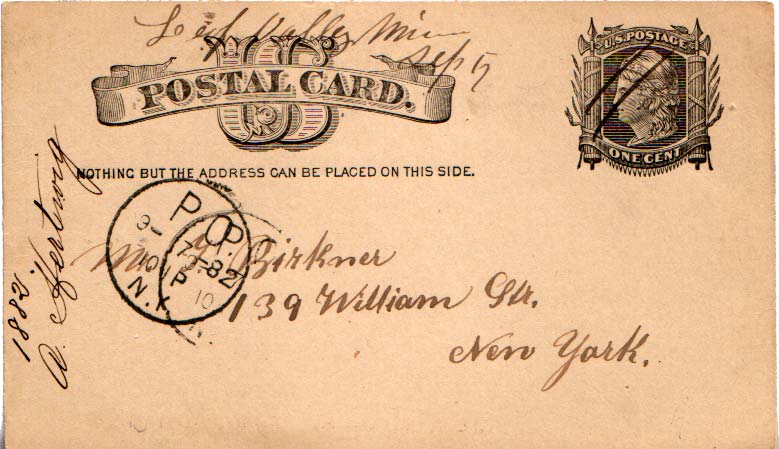 Valley Minn
Sep 5
U.S. POSTAGE
ONE CENT
US
POSTAL CARD.
NOTHING BUT THE ADDRESS CAN BE PLACED ON THIS SIDE.
P.O.
9-7-82
10 P
N.Y.
P.
10
N.
Mr. Birkner
139 William Str.
New York.
1882
A. Hertwig